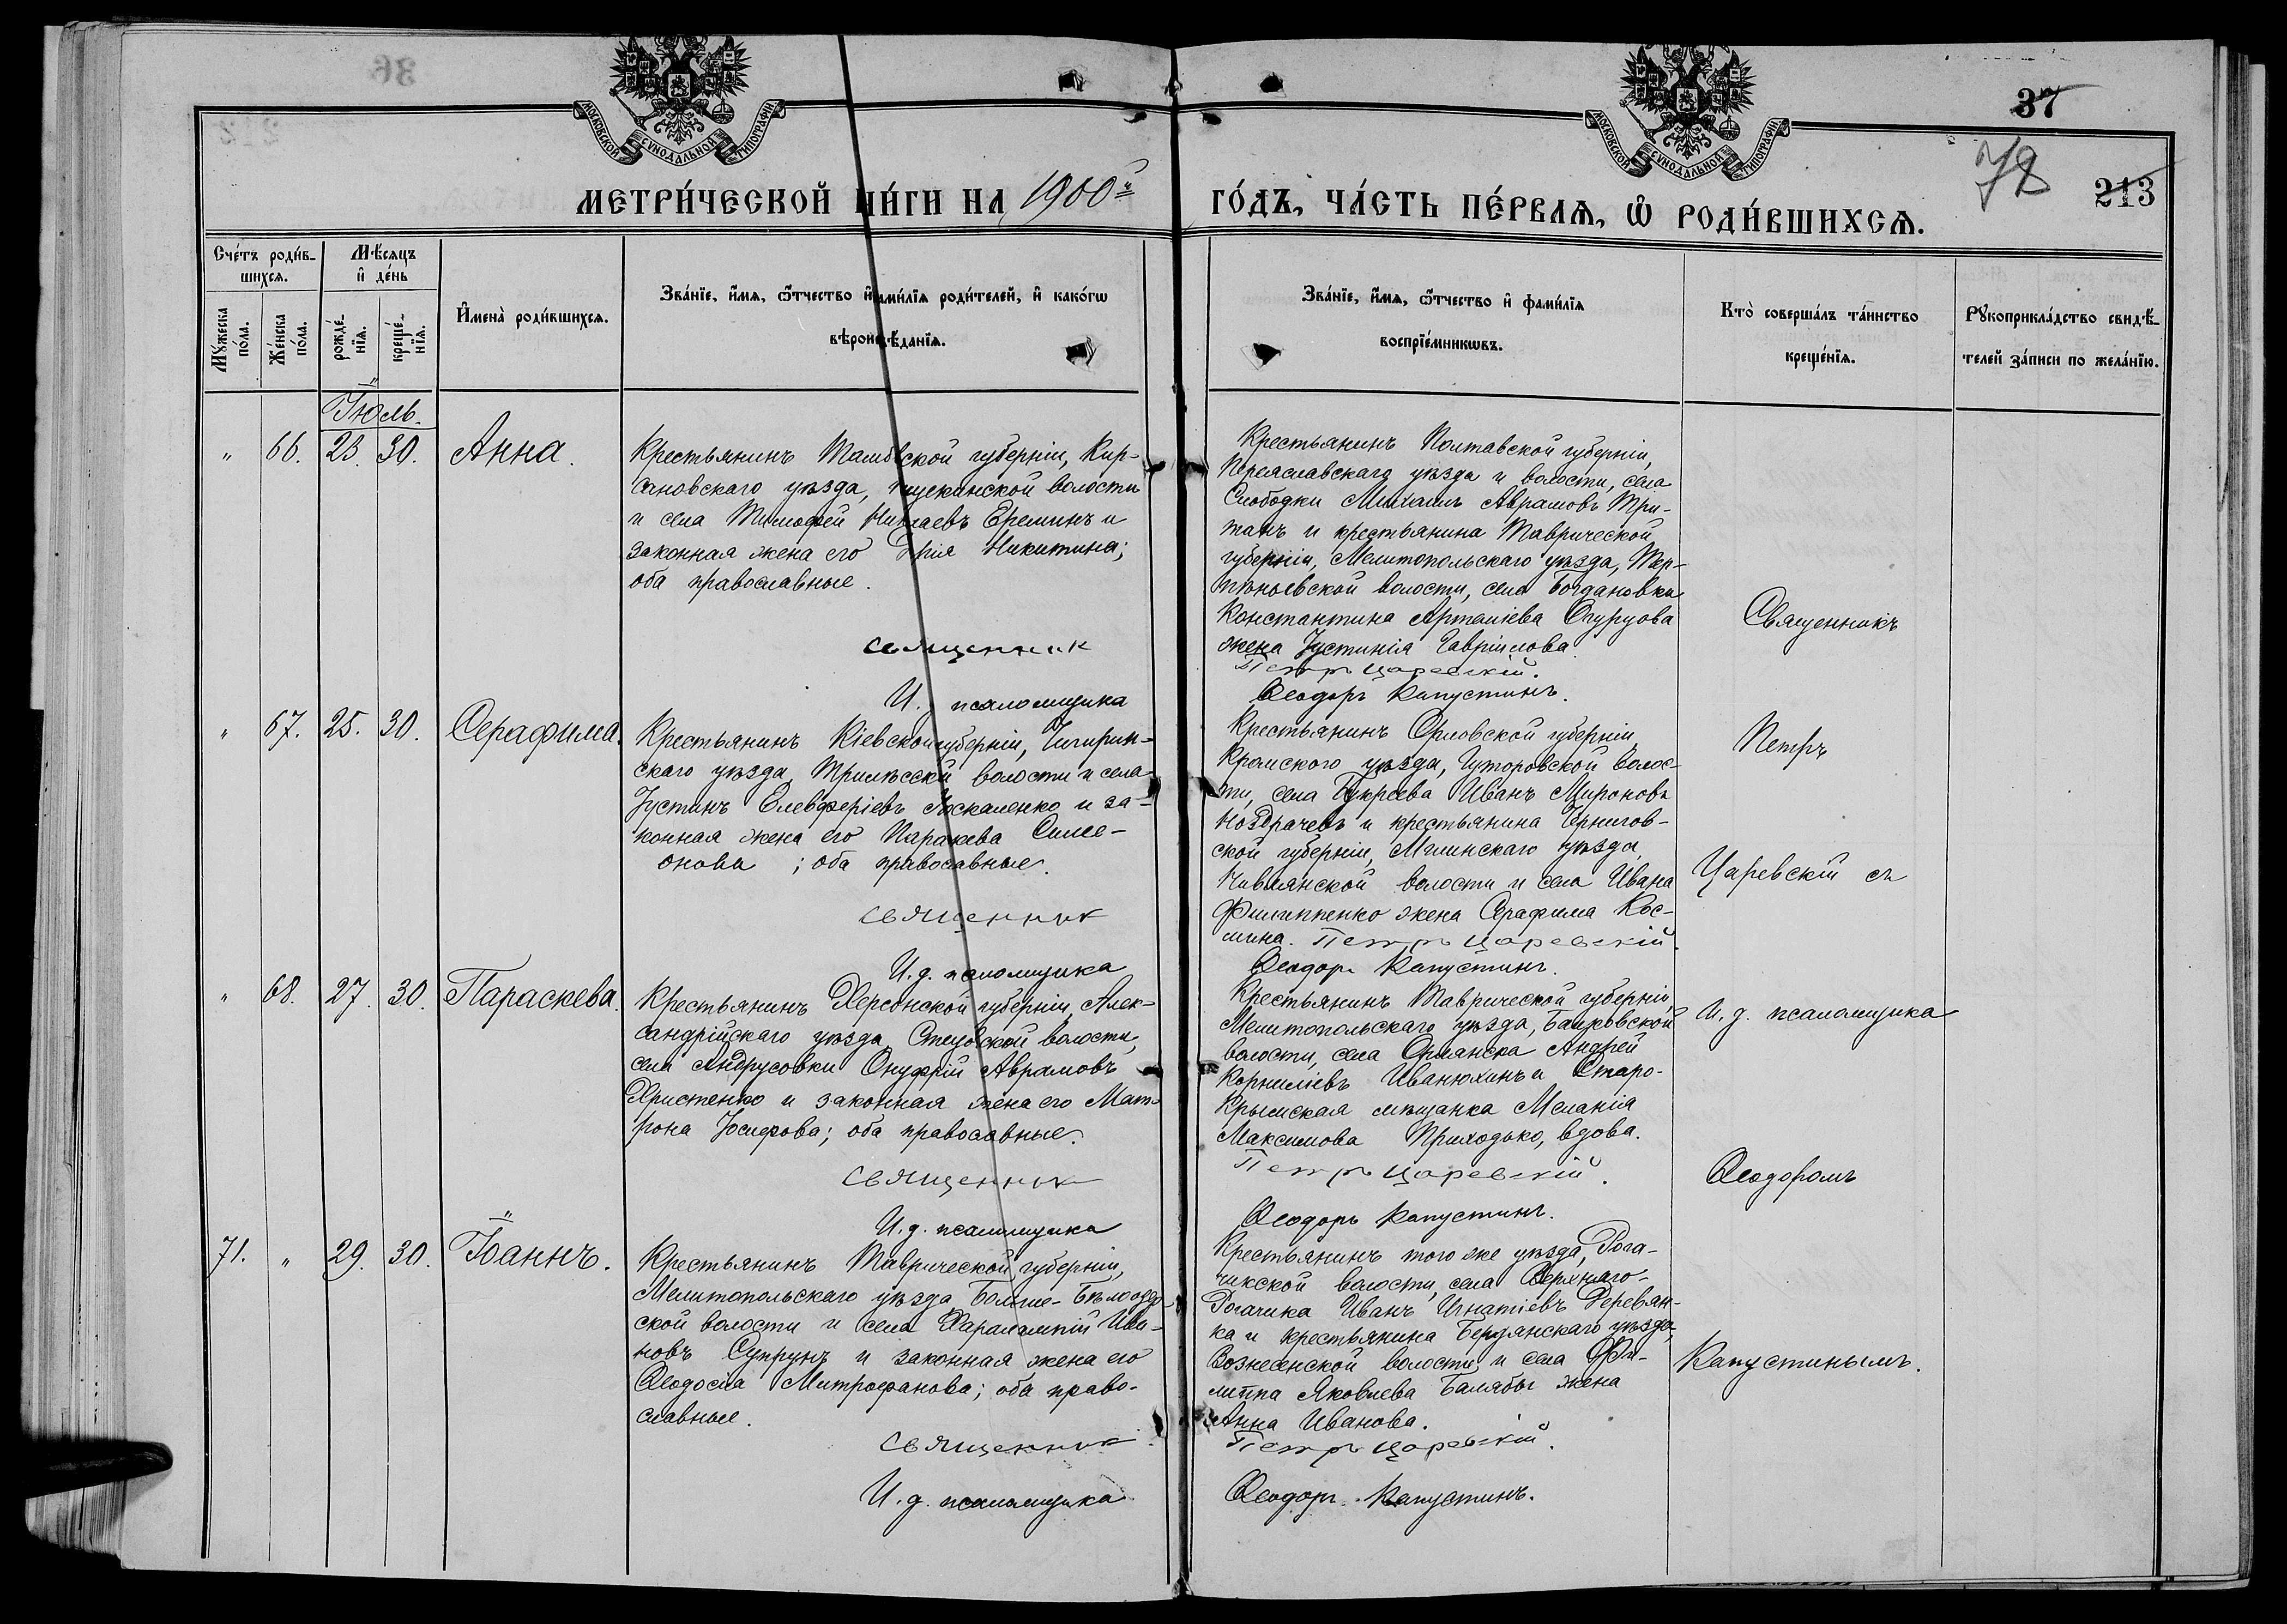 37
78
213
МОСКОВСКОЙ СѴНОДАЛЬНОЙ ТИПОГРАФІИ
МОСКОВСКОЙ СѴНОДАЛЬНОЙ ТИПОГРАФІИ
МЕТРИ́ЧЕСКОЙ КНИ́ГИ НА 1900й ГО́ДЪ, ЧА́СТЬ ПЕ́РВАѦ, Ѡ РОДИ́ВШИХСѦ.
Сче́тъ роди́в-
шихсѧ.
Мѣ́сяцъ
и де́нь
Мꙋ́жеска
по́ла.
Же́нска
по́ла.
рожде́-
нїѧ.
креще́-
нїѧ.
Имена̀ роди́вшихсѧ.
Зва́нїе, и́мѧ, ѻ҆́тчество и фами́лїѧ роди́телей, и како́гѡ
вѣроисповѣ́данїѧ.
Зва́нїе, и́мѧ, ѻ҆́тчество и фами́лїѧ
воспрїе́мникѡвъ.
Кто̀ соверша́лъ та́инство
креще́нїѧ.
Рꙋкоприкла́дство свидѣ́-
телей за́писи по жела́нїю.
Іюль.
" 66. 23. 30. Анна.
Крестьянинъ Тамбовской губерніи, Кир-
сановскаго уѣзда, волости
и села Тимофей Николаевъ Ереминъ и
законная жена его Никитина;
оба православные.
Священник
И. д. псаломщика
Крестьянинъ Полтавской губерніи,
Переяславскаго уѣзда и волости, села
Слободки Михаилъ Аврамовъ Три-
танъ и крестьянина Таврической
губерніи, Мелитопольскаго уѣзда, Тер-
пѣньевской волости, села Богдановки
Константина Артеміева Огурцова
жена Іустинія Гавріилова.
Петръ Царевскій.
Ѳеодоръ Капустинъ.
" 67. 25. 30. Серафима.
Крестьянинъ Кіевской губерніи, Чигирин-
скаго уѣзда, Трилѣсской волости и села
Іустинъ Елевферіевъ Москаленко и за-
конная жена его Параскева Симе-
онова; оба православные.
Священник
И. д. псаломщика
Крестьянинъ Орловской губерніи,
Кромского уѣзда, Гуторовской волос-
ти, села Букреева Иванъ Мироновъ
Ноздрачевъ и крестьянина Чернигов-
ской губерніи, Мглинскаго уѣзда,
волости и села Ивана
Филиппенко жена Серафима Кос-
мина. Петръ Царевскій.
Ѳеодоръ Капустинъ.
" 68. 27. 30. Параскева.
Крестьянинъ Херсонской губерніи, Алек-
сандрійскаго уѣзда, волости,
села Андрусовки Онуфрій Аврамовъ
Христенко и законная жена его Мат-
рона Іосифова; оба православные.
Священник
И. д. псаломщика
Крестьянинъ Таврической губерніи,
Мелитопольскаго уѣзда, Балковской
волости, села Орлянска Андрей
Корниліевъ Иванюхинъ и Старо-
Крымская мѣщанка Меланія
Максимова Приходько, вдова.
Петръ Царевскій.
Ѳеодоръ Капустинъ.
71. " 29. 30. Іоаннъ.
Крестьянинъ Таврической губерніи,
Мелитопольскаго уѣзда Больше-Бѣлозер-
ской волости и села Харалампій Ива-
новъ Супрунъ и законная жена его
Ѳеодосіа Митрофанова; оба право-
славные.
Священник
И. д. псаломщика
Крестьянинъ того же уѣзда, Рога-
чикской волости, села Верхняго-
Рогачика Иванъ Игнатіевъ Деревян-
ка и крестьянина Бердянскаго уѣзда,
Вознесенской волости и села Фи-
липпа Яковлева Балябы жена
Анна Иванова.
Петръ Царевскій.
Ѳеодоръ Капустинъ.
Священникъ
Петръ
Царевскій съ
И. д. псаломщика
Ѳеодоромъ
Капустинымъ.